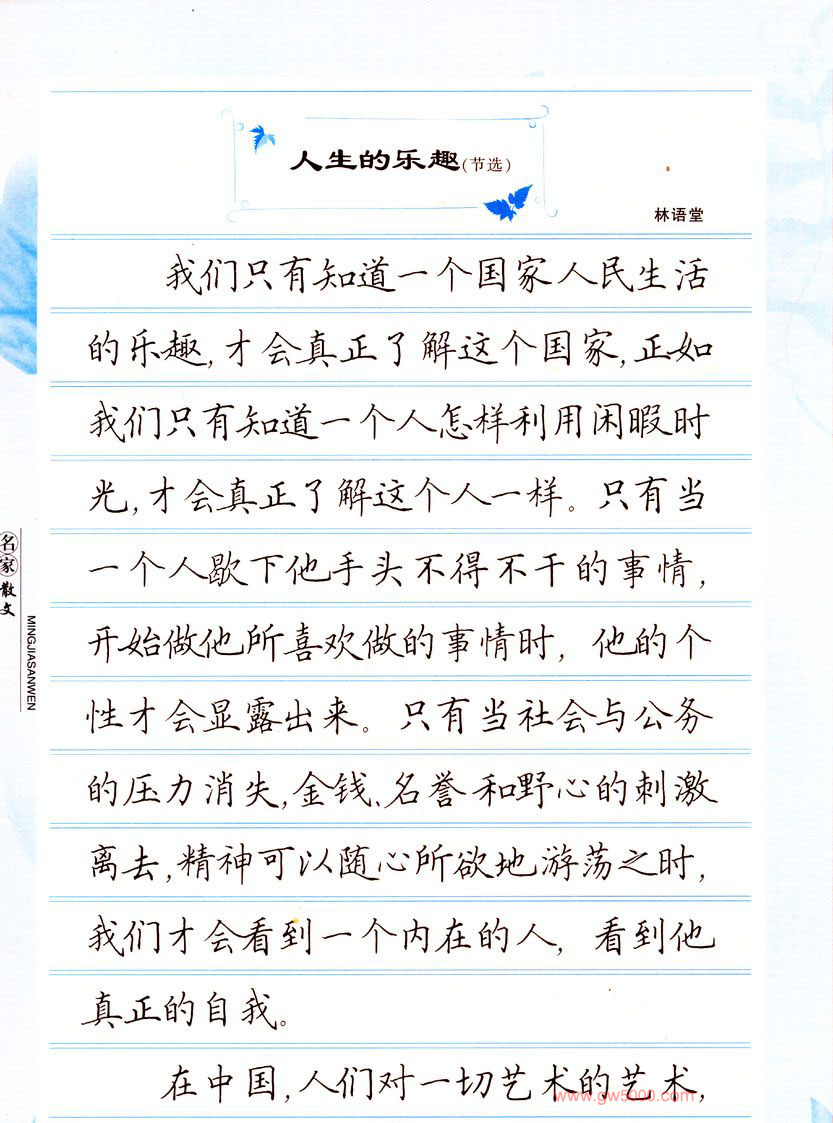 人生的乐趣(节选)
林语堂
我们只有知道一个国家人民生活
的乐趣,才会真正了解这个国家,正如
我们只有知道一个人怎样利用闲暇时
光,才会真正了解这个人一样。只有当
一个人歇下他手头不得不干的事情,
开始做他所喜欢做的事情时,他的个
性才会显露出来。只有当社会与公务
的压力消失,金钱、名誉和野心的刺激
离去,精神可以随心所欲地游荡之时,
我们才会看到一个内在的人,看到他
真正的自我。
在中国,人们对一切艺术的艺术,
名家散文
MINGJIASANWEN
www.gw5000.com